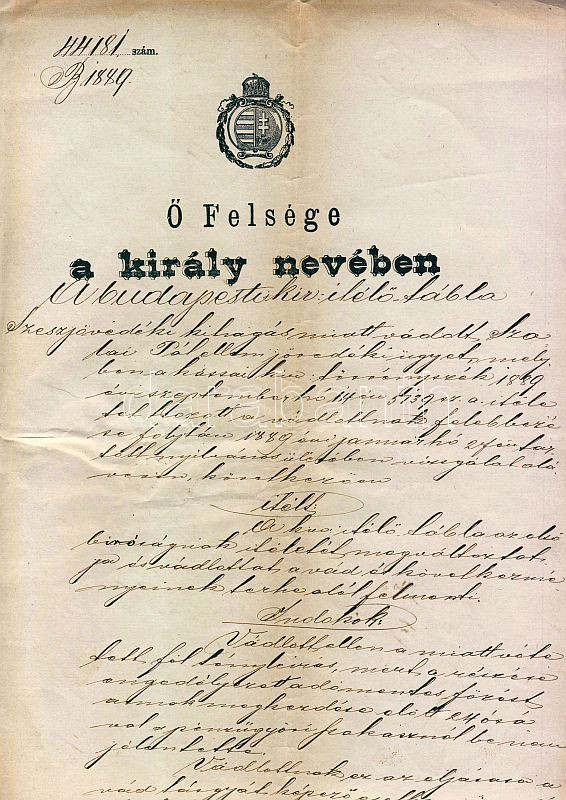 44181 szám.
B. 1889.
Ő Felsége
a király nevében
A budapesti kir: itélő tábla
Szeszjövedéki kihágás miatt vádolt Sza
lai Pál elleni jövedéki ügyet, mely
ben a kassai kir: törvényszék 1889
évi szeptember hó 14én 5739 sz. a. itéle
tet hozott a vádlottnak felebbezé
se folytán 1889 évi január hó 2 án tar
tott nyilvános ülésében vizsgálat alá
vevén, következően
itélt:
A kir: itélő tábla az első
biróságnak itéletét megváltoztat
ja és vádlottat a vád és következmé
nyeinek terhe alól felmenti.
Indokok:
Vádlott ellen a miatt véte
tett fel tényleirás, mert a részére
engedélyezett adómentes főzést
annak megkezdése előtt 24 órá
val a pénzügyőri szakasznál be nem
jelentette.
Vádlottnak ez az eljárása a
vád tárgyát képező